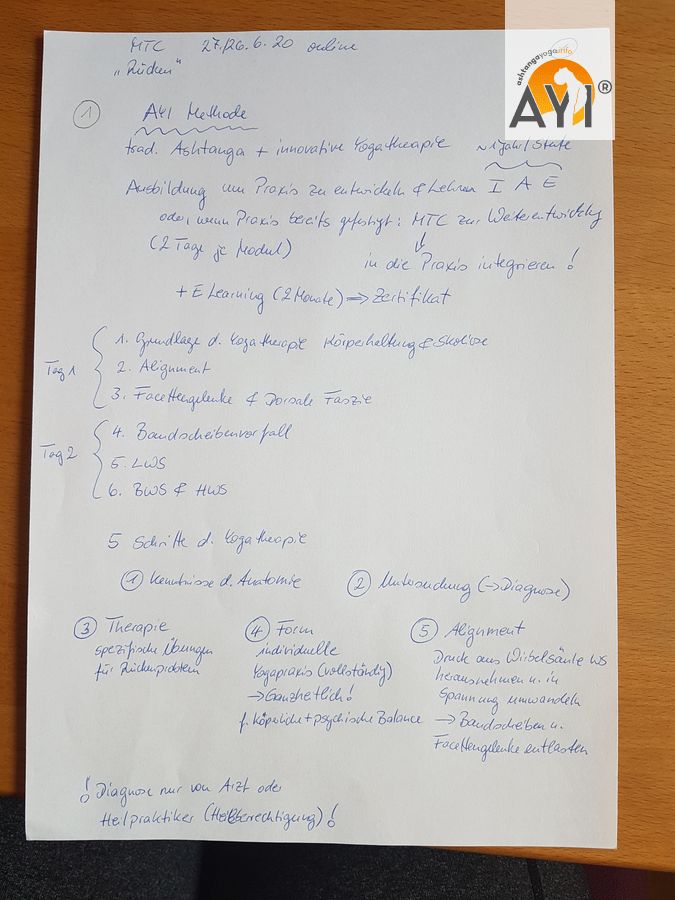 MTC 27./26.6.20 online
„Rücken"
ashtangayoga.info
AYI®
① AYI Methode
trad. Ashtanga + innovative Yogatherapie ~1 Jahr/Stufe
Ausbildung um Praxis zu entwickeln & Lehren I A E
oder, wenn Praxis bereits gefestigt: MTC zur Weiterentwicklg
(2 Tage je Modul) ↓
in die Praxis integrieren!
+ E Learning (2 Monate) ⇒ Zertifikat
1. Grundlage d. Yogatherapie Körperhaltung & Skoliose
Tag 1 2. Alignment
3. Facettengelenke & Dorsale Faszie
4. Bandscheibenvorfall
Tag 2
5. LWS
6. BWS & HWS
5 Schritte d. Yogatherapie
① Kenntnisse d. Anatomie ② Untersuchung (→ Diagnose)
③ Therapie
spezifische Übungen
für Rückenproblem
④ Form
individuelle
Yogapraxis (vollständig)
→ Ganzheitlich!
f. körperliche + psychische Balance
⑤ Alignment
Druck aus Wirbelsäule WS
herausnehmen u. in
Spannung umwandeln
→ Bandscheiben u.
Facettengelenke entlasten
! Diagnose nur von Arzt oder
Heilpraktiker (Heilberechtigung) !